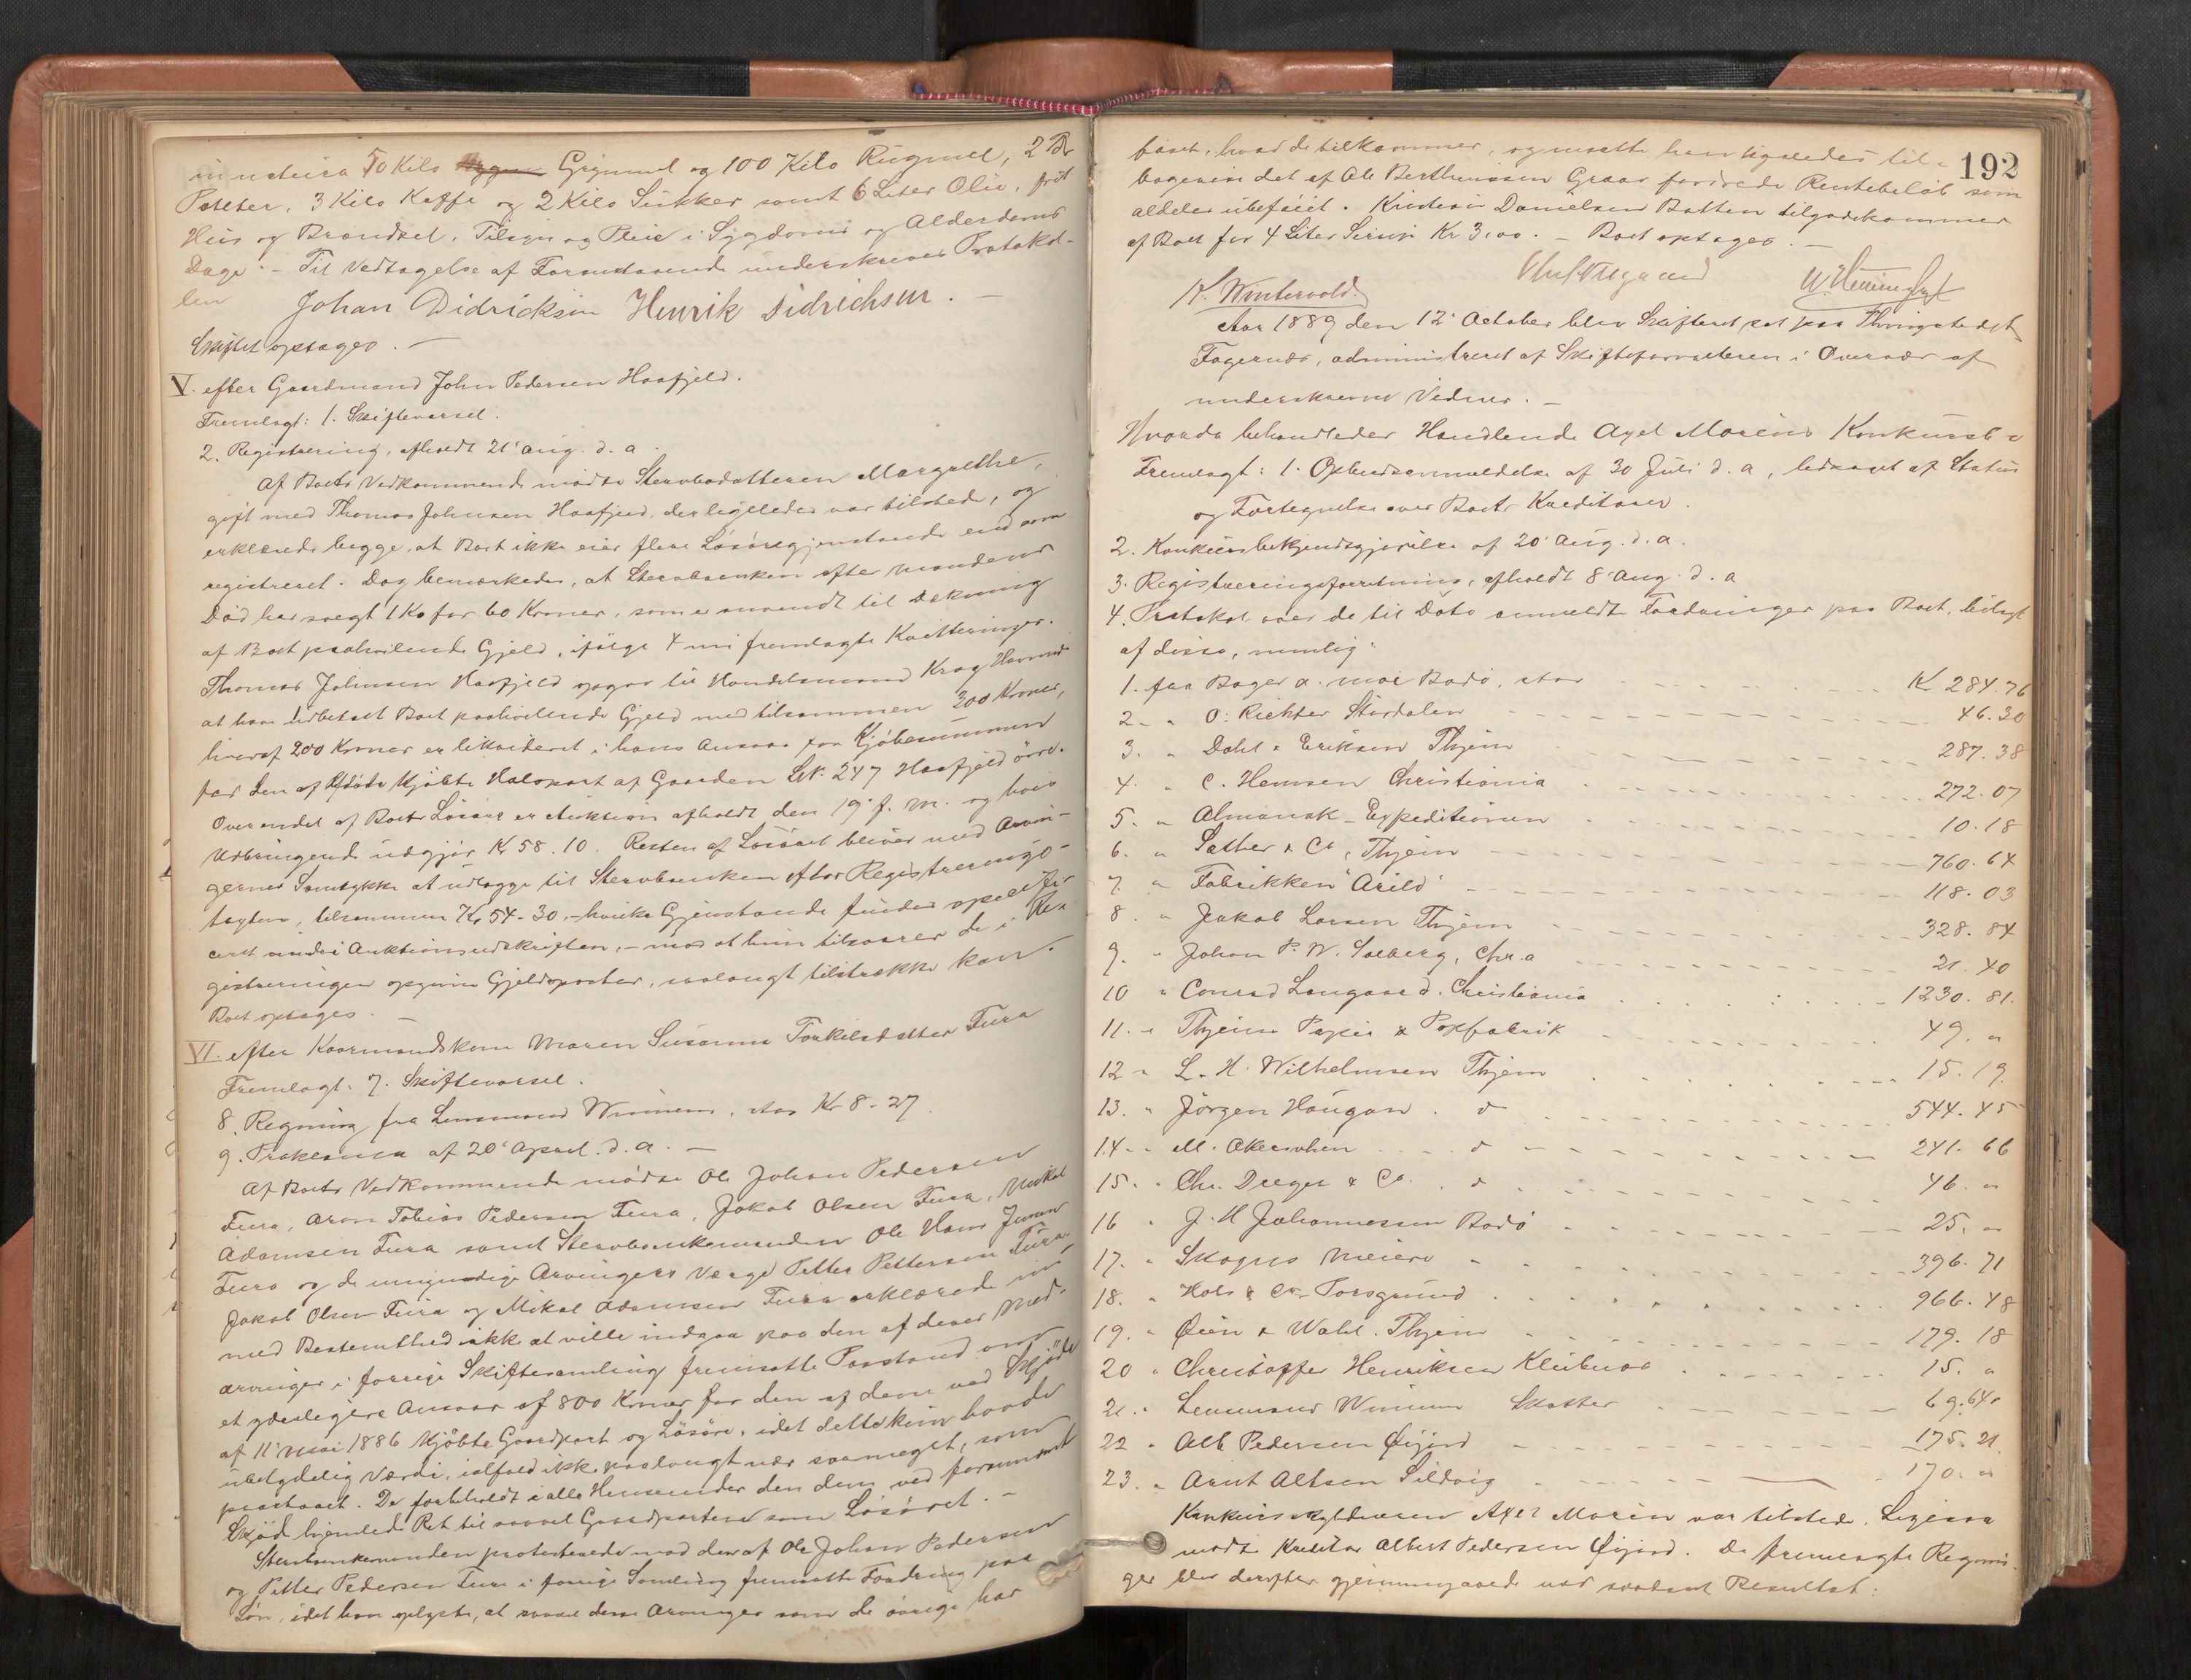 in natura 50 Kilo Grynmel og 100 Kilo Rugmel, 2 Tdr
Poteter, 3 Kilo Kaffe og 2 Kilo Sukker samt 6 Liter Olie, frit
Hus og Brændsel, Tilsyn og Pleie i Sygdoms og Alderdoms
Dage. – Til Vedtagelse af Foranstaaende underskreves Protokol-
len Johan Didricksen Henrik Didrichsen. –
Skiftet optages. –
V. efter Gaardmand John Pedersen Haafjeld.
Fremlagt: 1. Skiftevarsel.
2. Registrering, afholdt 21' Aug. d. a.
Af Boets Vedkommende mødte Stervbodatteren Margrethe,
gift med Thomas Johnsen Haafjeld, der ligeledes var tilstede, og
erklærede begge, at Boet ikke eier flere Løsøregjenstande end som
registreret. Dog bemærkedes, at Stervboenken efter Mandens
Død har solgt 1 Ko for 60 Kroner, som er anvendt til Dækning
af Boet paahvilende Gjeld, ifølge 4 nu fremlagte Kvitteringer.
Thomas Johnsen Haafjeld opgav til Handelsmand Krag Hemnes
at have udbetalt Boet paahvilende Gjeld med tilsammen 300 Kroner,
hvoraf 200 Kroner er likvideret i hans Ansvar for Kjøbesummen
for den af Afdøde kjøbte Halvpart af Gaarden L.N. 247 Haafjeld øvre.
Over endel af Boets Løsøre er Auktion afholdt den 19' f. M. og hvis
Udbringende udgjør Kr 58.10. Resten af Løsøret bliver med Arvin-
gernes Samtykke at udlægge til Stervboenken efter Registrerings-
taxten, tilsammen Kr. 54-30, – hvilke Gjenstande findes specifi-
ceret under Auktionsudskriften, – mod at hun tilsvarer de i Re-
gistreringen opgivne Gjeldsposter, saalangt tilstrække kan.
Boet optages. –
VI. efter Kaarmandskone Maren Susanna Torkilsdatter Fura
Fremlagt: 7. Skiftevarsel.
8. Regning fra Lensmand Winnem, stor Kr 8-27
9. Proklama af 20' April d. a. –
Af Boets Vedkommende mødte Ole Johan Pedersen
Fura, Aron Tobias Pedersen Fura, Jakob Olsen Fura, Mikal
Adamsen Fura samt Stervboenkemanden Ole Hans Jensen
Fura og de umyndige Arvingers Værge Petter Pettersen Fura.
Jakob Olsen Fura og Mikal Adamsen Fura erklærede nu
med Bestemthed ikke at ville indgaa paa den af deres Med-
arvinger i forrige Skiftesamling fremsatte Paastand om
et yderligere Ansvar af 800 Kroner for den af dem ved Skjøde
af 11' Mai 1886 kjøbte Gaardpart og Løsøre, idet dette kun havde
ubetydelig Værdi, ialfald ikke paalangt nær saameget, som
paastaaet. De forbeholdt i alle Henseender den dem ved forommeldt
Skjøde hjemlede Ret til saavel Gaardparten som Løsøret. –
Stervboenkemanden protesterede mod den af Ole Johan Pedersen
og Petter Pedersen Fura i forrige Samling fremsatte Fordring paa
Løn, idet han oplyste, at saavel disse Arvinger som de øvrige har
192
faaet, hvad de tilkommer, og maatte han ligeledes til-
bagevise det af Ole Berthinussen Graar fordrede Rentebeløb som
aldeles ubeføiet. Kristian Danielsen Batten tilgodekommer
af Boet for 4 Liter Sirup Kr 3,00. – Boet optages. –
K. Wintervold.
Aar 1889 den 12' October blev Skifteret sat paa Thingstedet
Fagernæs, administreret af Skifteforvalteren i Overvær af
underskrevne Vidner. –
Hvorda behandledes Handlende Axel Moréns Konkursbo
Fremlagt: 1. Opbudsanmeldelse af 30 Juli d. a, ledsaget af Status
og Fortegnelse over Boets Kreditorer.
2. Konkursbekjendtgjørelse af 20' Aug. d. a.
3. Registreringsforretning, afholdt 8' Aug. d. a
4. Protokol over de til Dato anmeldte Fordringer paa Boet, bilagt
af disse, nemlig:
1. fra Bager A. Moe Bodø, stor Kr 284.76
2. " O. Richter Stördalen 46.30
3. " Dahl & Eriksen Thjem 287.38
4. " C. Hemsen Christiania 272.07
5. " Almanak-Expeditionen 10.18
6. " Sæther & Co, Thjem 760.64
7. " Fabrikken "Arild" 118.03
8. " Jakob Larsen Thjem 328.84
9. " Johan P. W. Solberg, Chr.a 21.40
10 " Conrad Langaard. Christiania 1230.81.
11. " Thjems Papir & Posefabrik 49. "
12 " L. H. Wilhelmsen Thjem 15.19.
13. " Jörgen Haugan. do 544.45
14. " M. Akerøhen do 241.66
15. " Chr. Dreyer & Co. do 46. "
16 " J. H Johannessen Bodø 25. "
17. " Skogns Meieri 396.71
18. " Hols & Co. Porsgrund 966.48
19. " Øien & Wahl. Thjem 179.18
20 " Christoffer Henriksen Klubnes 15. "
21. " Lensmand Winnem Skatter 69.64
22 " Alb. Pedersen Øijord 175.21.
23. " Arnt Altsen Sildvig 170. "
Konkursskyldneren Axel Morén var tilstede. Ligesaa
mødte Kreditor Albert Pedersen Øijord. De fremlagte Regnin-
ger blev derefter gjennemgaaede med saadant Resultat: